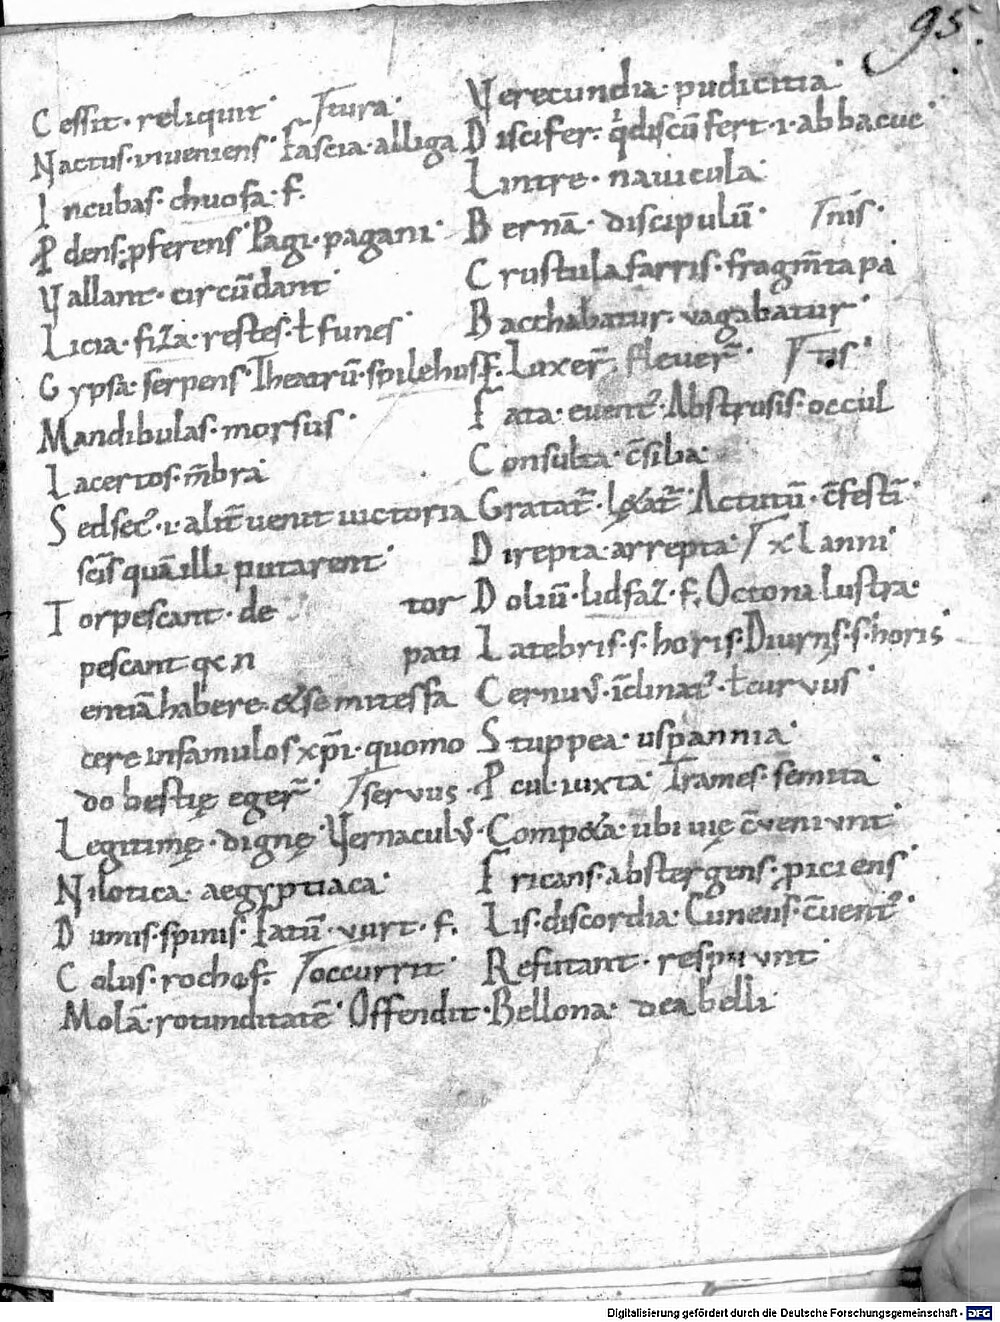 95.
Cessit. reliquit. Γtura.
Nactus. inveniens. Fascia. alliga
Incubas. chuofa. f.
P̄dens. p̄ferens. Pagi. pagani.
Vallant. circūdant.
Licia. fiza. restes. ł funes.
Gypsa. serpens. Theatrū. spilehus. f.
Mandibulas. morsus.
Lacertos. m̄bra
Sed sec᷒. i. alit̄ venit victoria
sc̄is quā illi putarent.
Torpescant. de tor
pescant qc n pati
entiā habere. & se mites fa
cere in famulos xp̄i. quomo
do bestię eger̄. Γservus.
Legitimę. dignę. Vernaculꝰ.
Nilotica. aegyptiaca.
Dumis. spinis. Fatū. vurt. f.
Colus. rocho. f. Γoccurrit.
Molā. rotunditatē. Offendit.
Verecundia. pudicitia.
Discifer. q̇ discū fert. i. abbacuc.
Lintre. navicula.
Bernā. discipulū. Γnis.
Crustula farris. fragm̄ta pa
Bacchabatur. vagabatur.
Luxer̄. flever̄. Γtis.
Fata. event᷒. Abstrusis. occul
Consulta. c̄silia.
Gratat᷒. l&at᷒. Actutū. c̄festī.
Direpta. arrepta. Γxl anni
Doliū. lidfaz. f. Octoni lustra.
Latebris. s. horis. Diurnis. s. horis
Cernuꝰ. īclinat᷒. ł curvus
Stuppea. uspannia.
P̄cul. iuxta. Trames. semita.
Comp&a. ubi vię c̄veniunt.
Fricans. abstergens. piciens.
Lis. discordia. Cuneus. c̄vent᷒.
Refutant. respuunt.
Bellona. dea belli
Digitalisierung gefördert durch die Deutsche Forschungsgemeinschaft - DFG